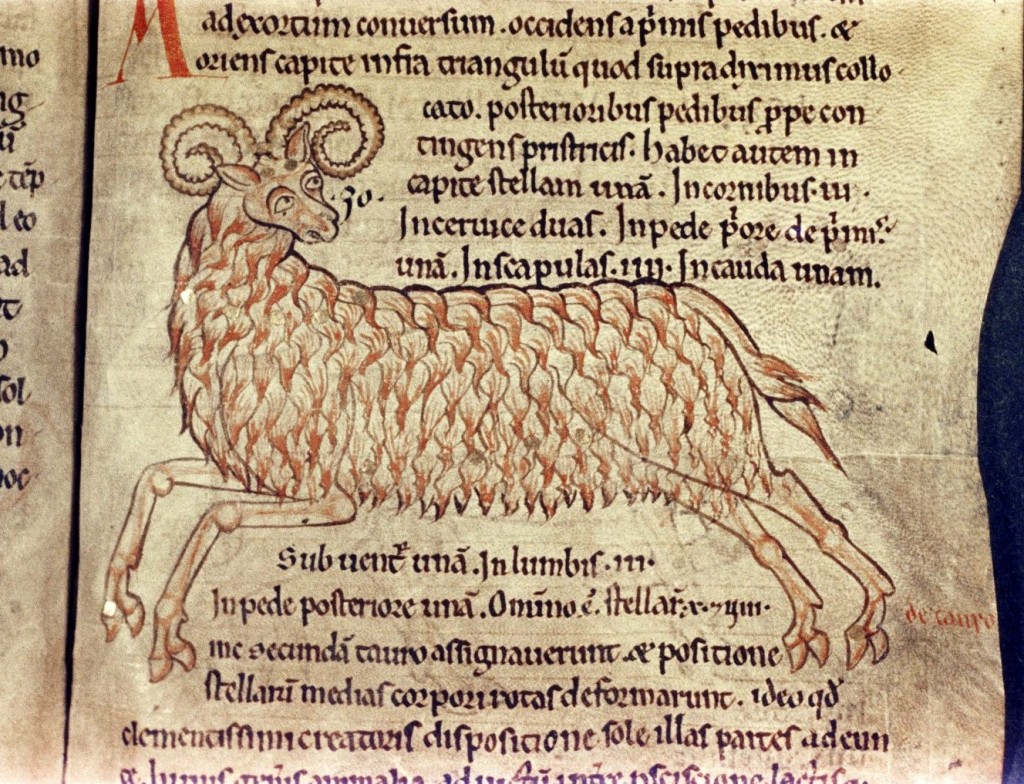 mo
ad exortum conversum. occidens a p̄mis pedibus. &
ng
oriens capite infra triangulū quod supra diximus collo
cato. posterioribus pedibus ꝓpe con
tingens pristricis. Habet autem in
e tēp
capite stellam unā. In cornibus .iii.
l eo
30.
In ceruice duas. In pede p̄ore de p̄mis
ad
unā. In scapulas .iiii. In cauda unam.
sol
Sub uentre unā. In lumbis .iii.
In pede posteriore unā. Omīno ē. stellarꝝ
de tauro
inc secundā tauro assignauerunt. & positione
stellarū medias corpori rotas deformarunt. ideo qđ
clementissimi creatoris dispositione sole illas partes adeun